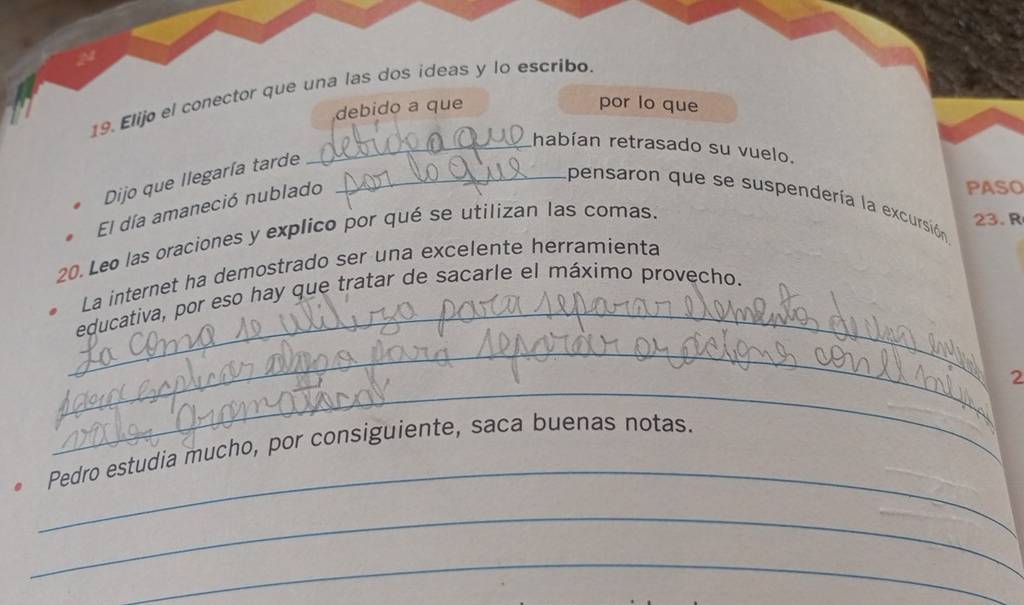 24
19. Elijo el conector que una las dos ideas y lo escribo.
debido a que
por lo que
Dijo que llegaría tarde debido a que habían retrasado su vuelo.
El día amaneció nublado por lo que pensaron que se suspendería la excursión.
20. Leo las oraciones y explico por qué se utilizan las comas.
La internet ha demostrado ser una excelente herramienta
educativa, por eso hay que tratar de sacarle el máximo provecho.
La coma se utiliza para separar elementos de una
para esplicar algo o para separar oraciones con el
valor gramatical
Pedro estudia mucho, por consiguiente, saca buenas notas.
PASO
23. R
2